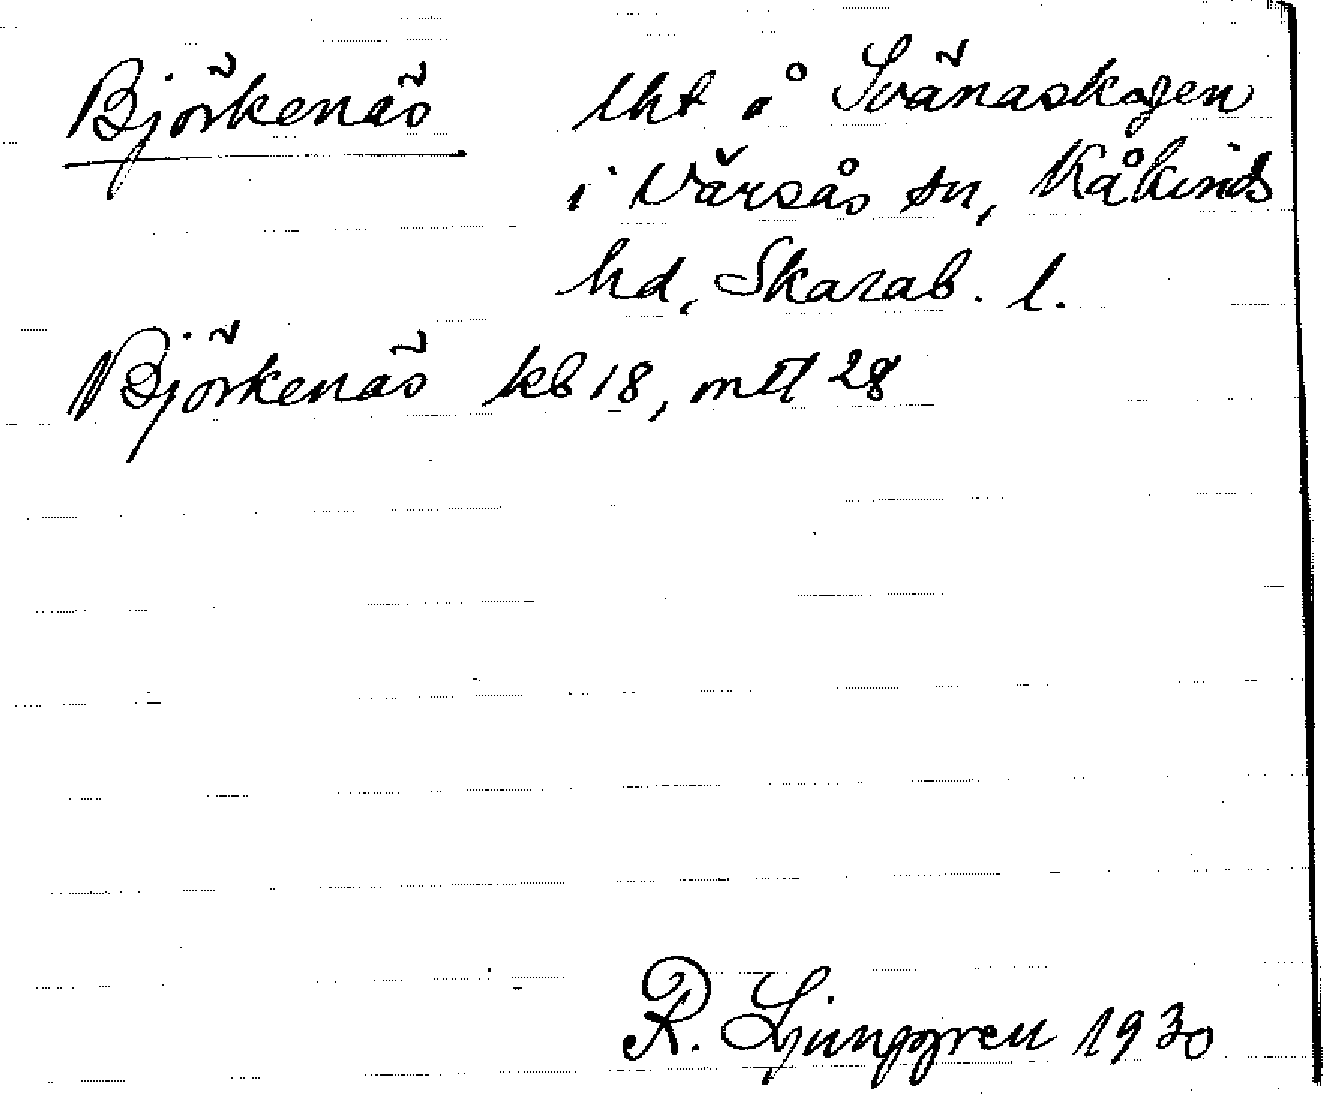 Björkenäs lht å Svänaskogen
i Värsås sn, Kåkinds
hd, Skarab. l.
Björkenäs kb 18, mtl 28
R. Ljunggren 1930